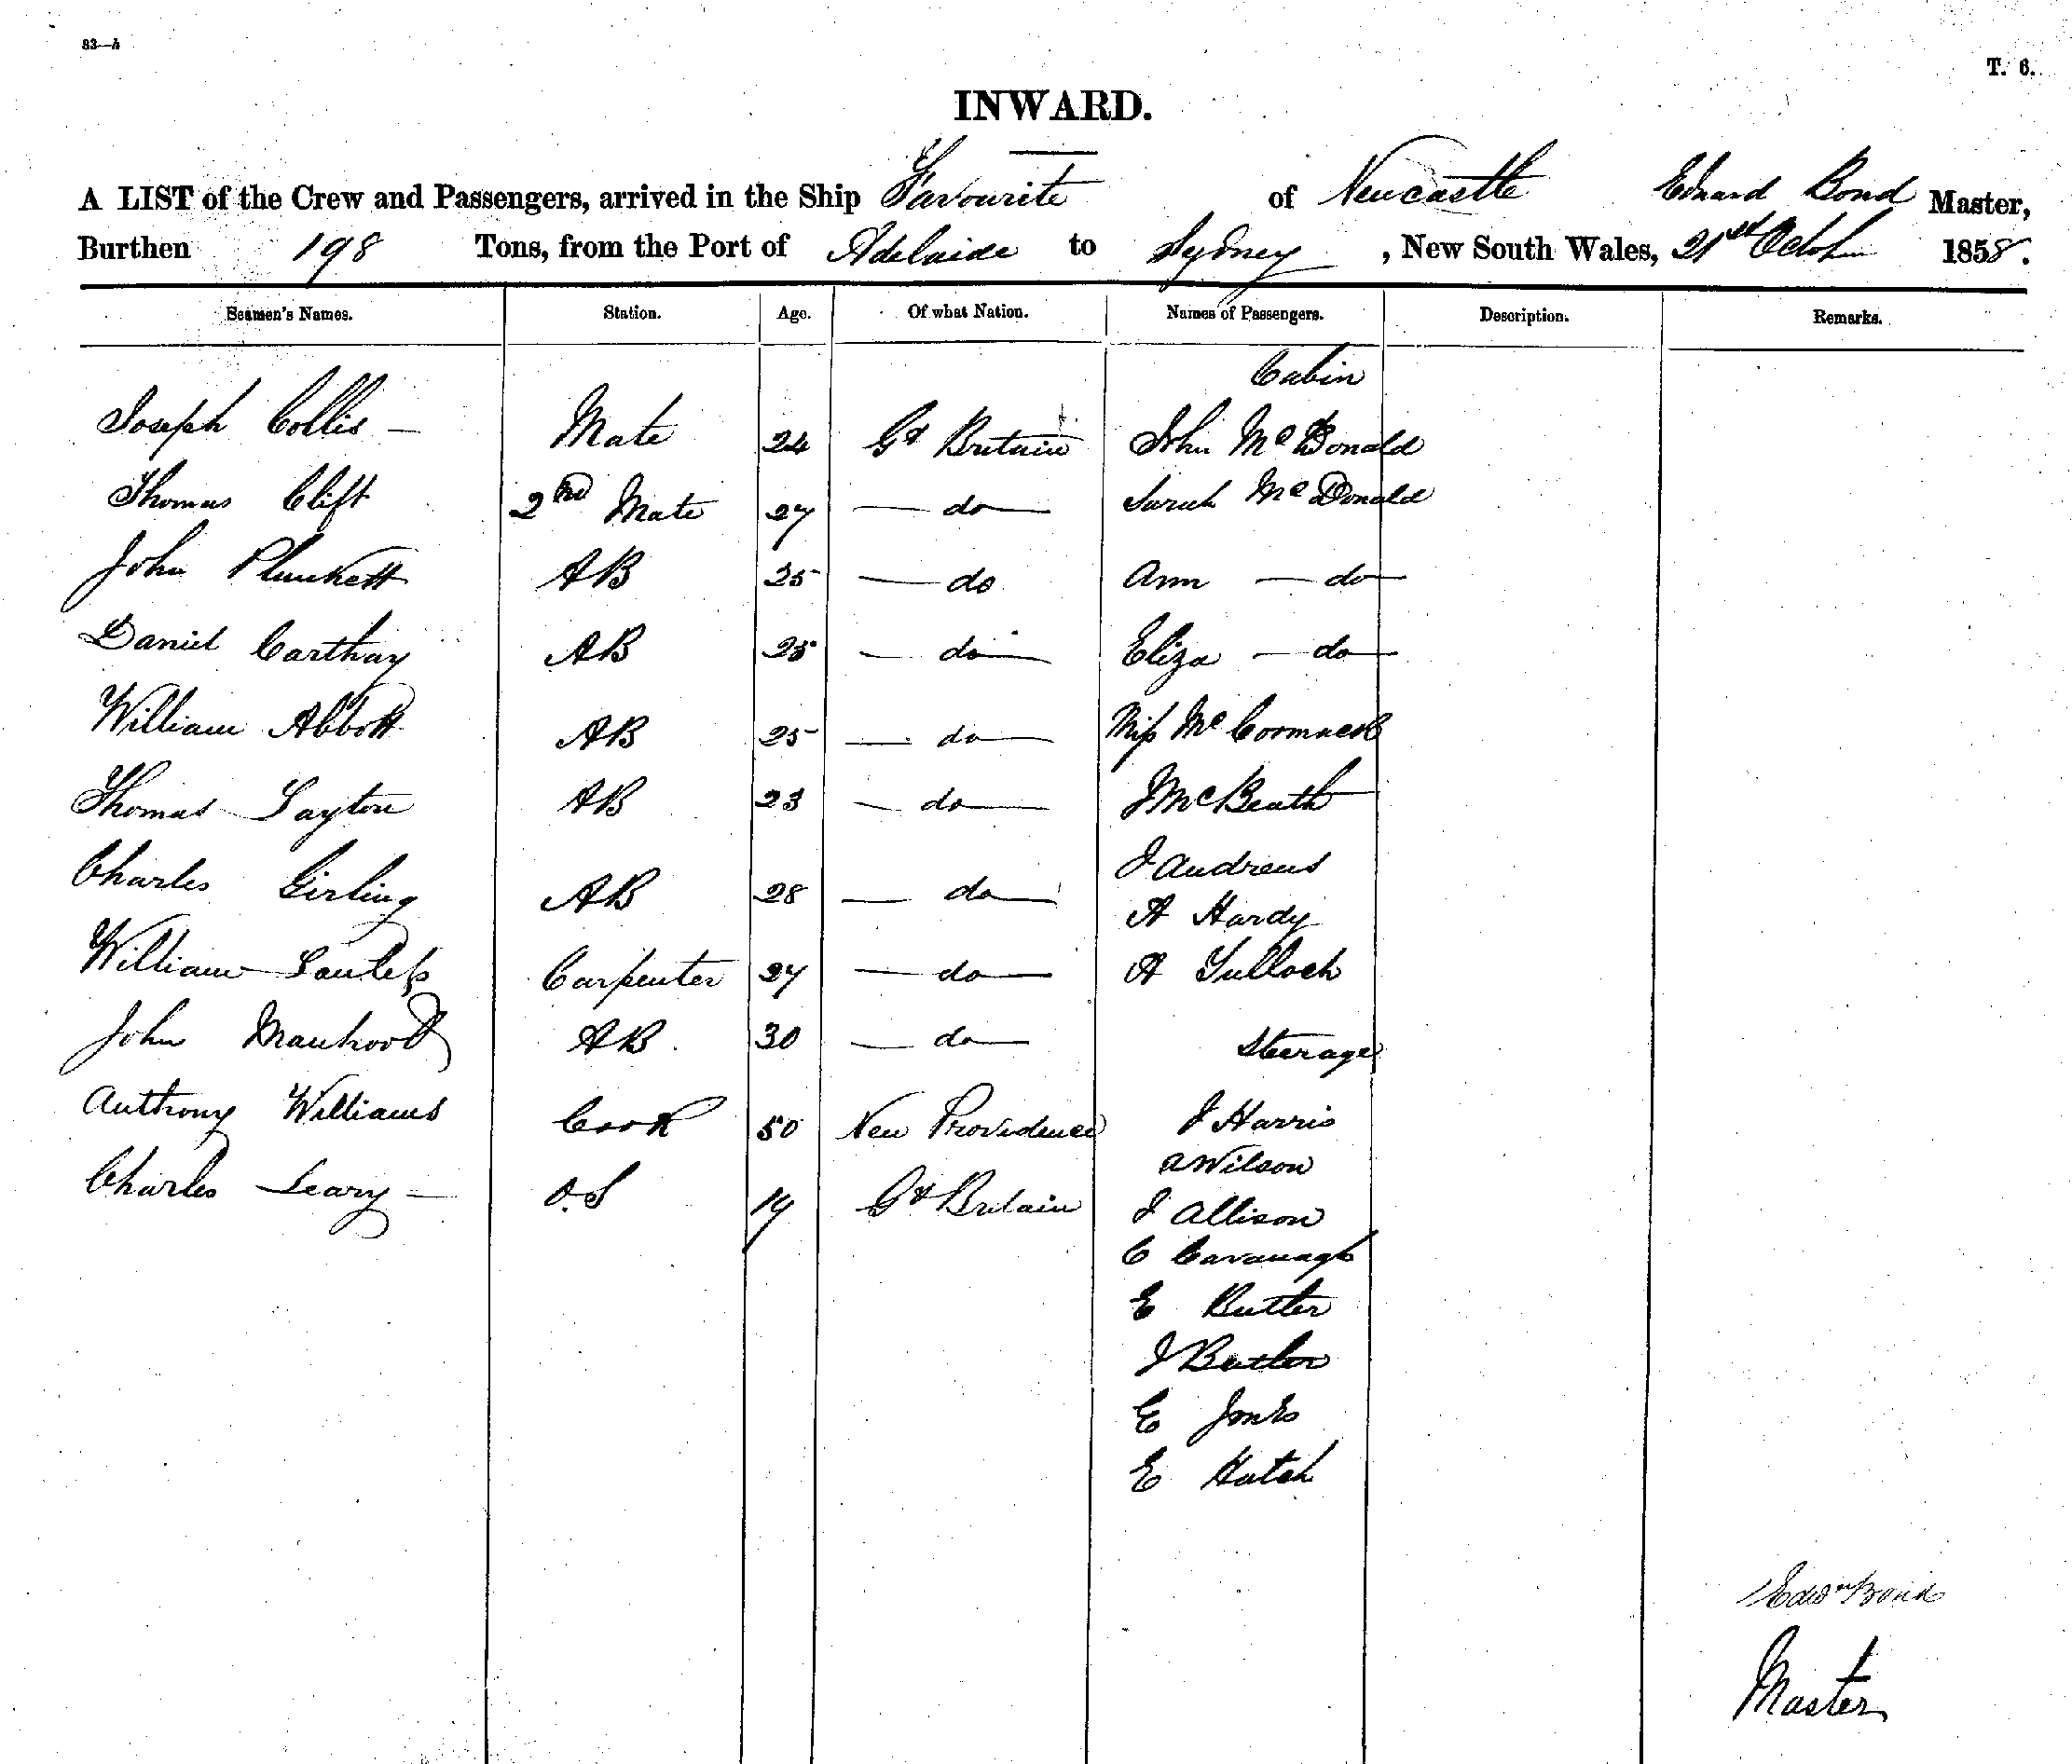 83—h
T. 6.
INWARD.
A LIST of the Crew and Passengers, arrived in the Ship Favourite of Newcastle Edward Bond Master,
Burthen 198 Tons, from the Port of Adelaide to Sydney, New South Wales, 21st 1858.
Seamen's Names. Station. Age. Of what Nation. Names of Passengers. Description. Remarks.
Cabin
Joseph Collis — Mate 24 Gt Britain John McDonald
Thomas Clift 2nd Mate 27 — do — Sarah McDonald
John Plunkett AB 25 — do Ann — do —
Daniel Carthay AB 25 — do — Eliza — do —
William Abbott AB 25 — do — Miss McCormack
Thomas Layton AB 23 — do — J McBeath
Charles Girling AB 28 — do — J Andrews
A Hardy
William Carpenter 27 — do — A Tulloch
John AB 30 — do — Steerage
Anthony Williams Cook 50 New Providence J Harris
A Wilson
Charles Leary — O.S 19 Gt Britain J Allison
C Cavanagh
E Butler
J Butler
E Jones
E Hatch
Edwd Bond
Master